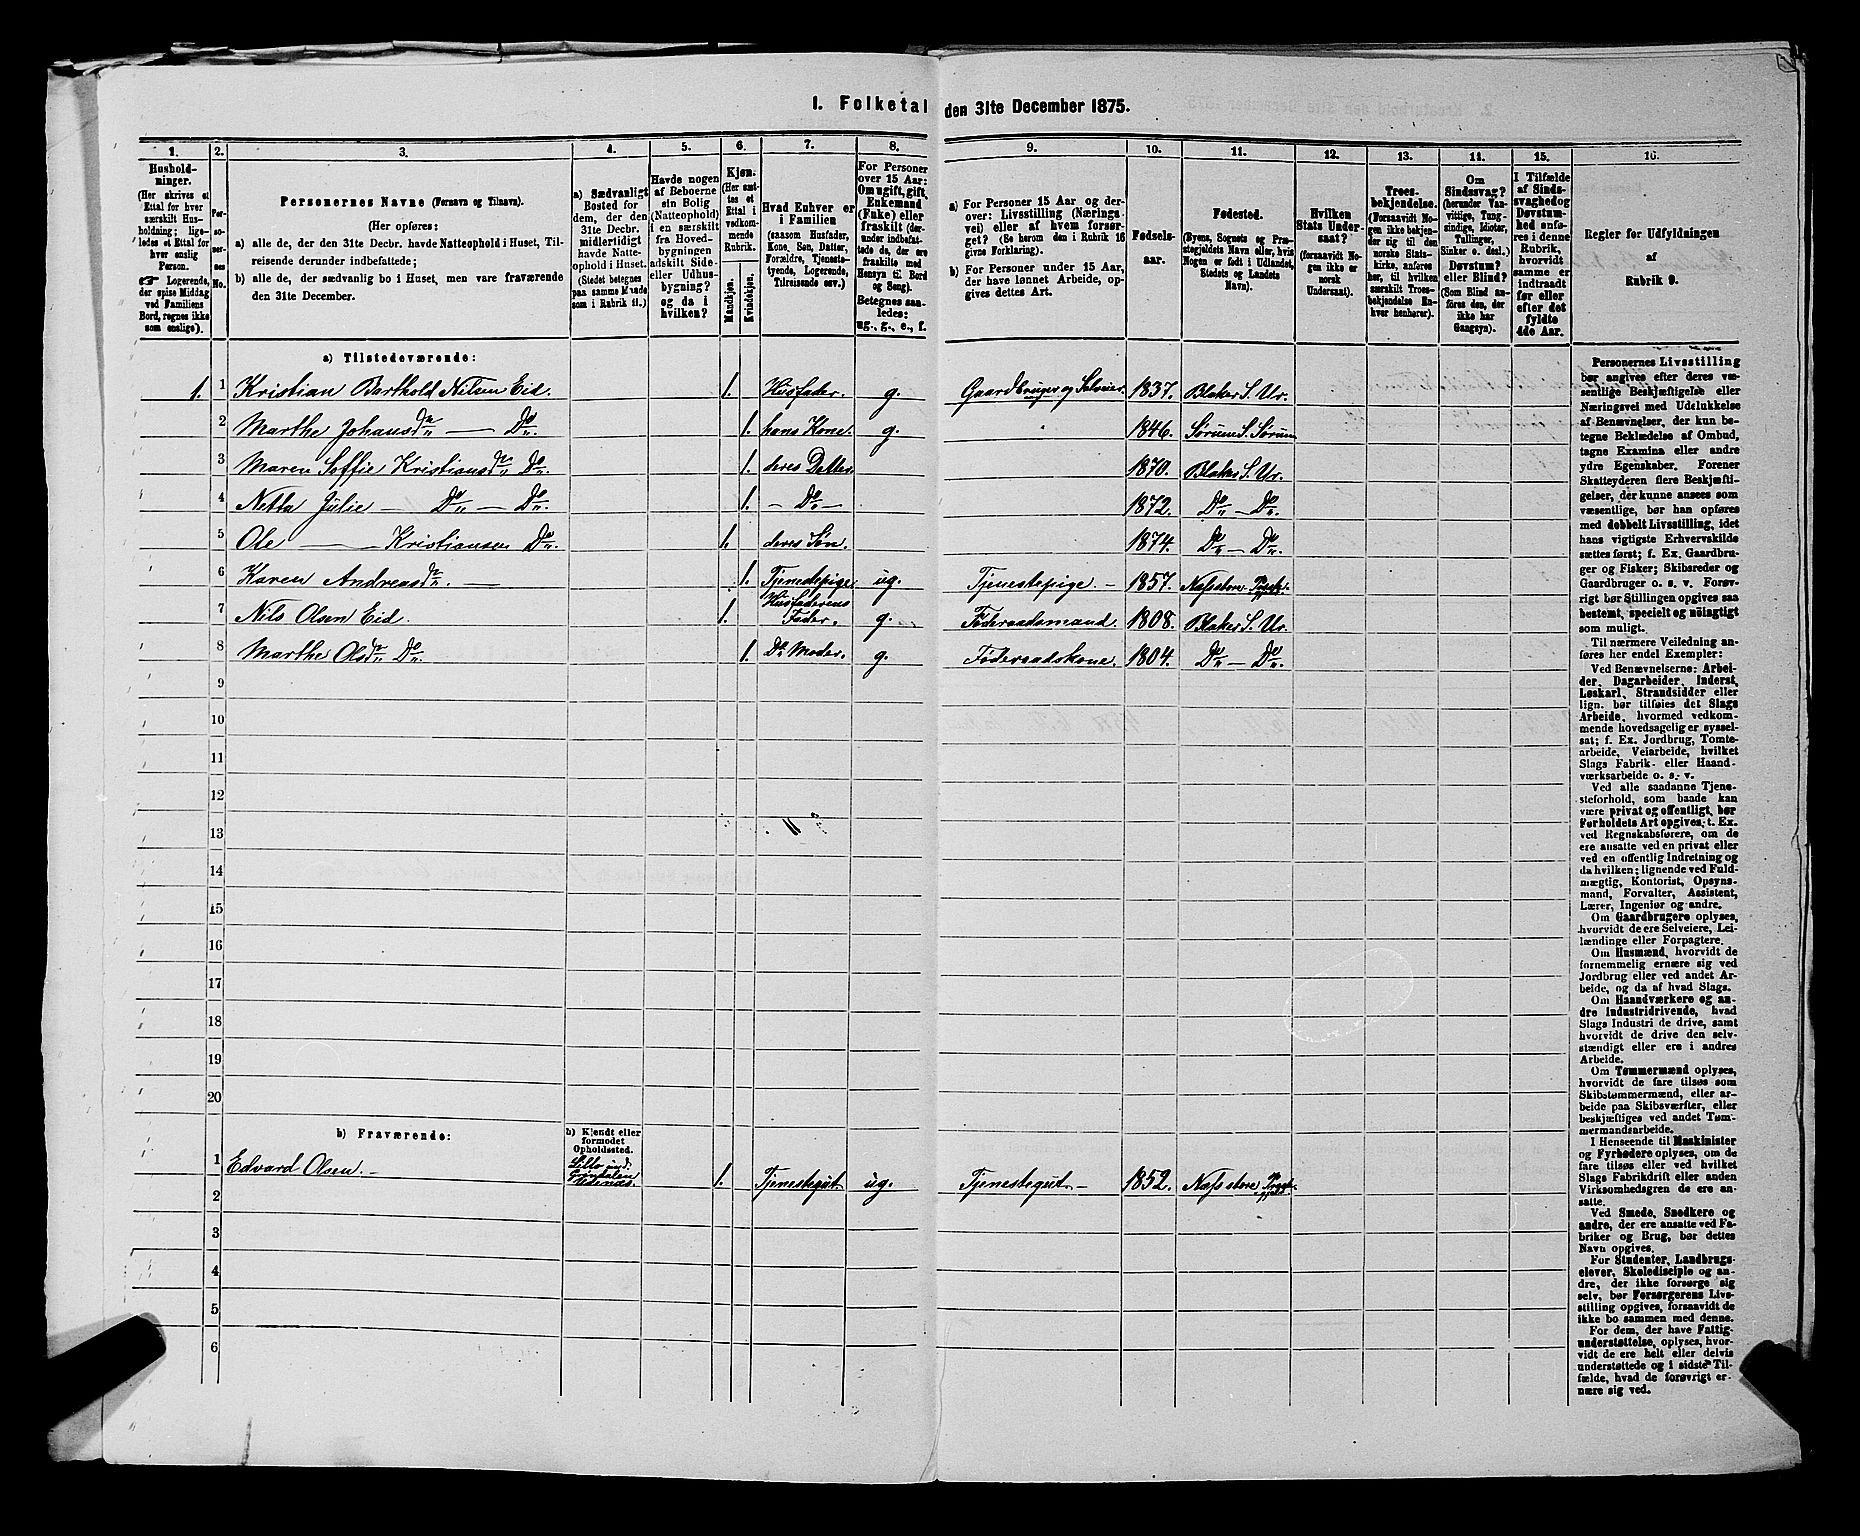 1. Folketal den 31te December 1875.
1. 2. 3. 4. 5. 6. 7. 8. 9. 10. 11. 12. 13. 14. 15. 16.
Hushold-
ninger.
(Her skrives et
Ettal for hver
særskilt Hus-
holdning; lige-
ledes et Ettal for
hver enslig
Person.
☞ Logerende,
der spise Middag
ved Familiens
Bord, regnes ikke
som enslige).
Per-
soner-
nes
No.
Personernes Navne (Fornavn og Tilnavn).
(Her opføres:
a) alle de, der den 31te Decbr. havde Natteophold i Huset, Til-
reisende derunder indbefattede;
b) alle de, der sædvanlig bo i Huset, men vare fraværende
den 31te December.
a) Sædvanligt
Bosted for
dem, der den
31te Decbr.
midlertidigt
havde Natte-
ophold i Huset.
(Stedet betegnes
paa samme Maade
som i Rubrik 11.)
Havde nogen
af Beboerne
sin Bolig
(Natteophold)
i en særskilt
fra Hoved-
bygningen
adskilt Side-
eller Udhus-
bygning?
og da i
hvilken?
Kjøn.
(Her sæt-
tes et
Ettal i
vedkom-
mende
Rubrik.
Mandkjøn.
Kvindekjøn.
Hvad Enhver er
i Familien
(saasom Husfader,
Kone, Søn, Datter,
Forældre, Tjeneste-
tyende, Logerende,
Tilreisende osv.)
For Personer
over 15 Aar:
Om ugift, gift,
Enkemand
(Enke) eller
fraskilt (der-
under indbefat-
tede de, der ere
fraskilte med
Hensyn til Bord
og Seng).
Betegnes saa-
ledes:
ug., g., e., f.
a) For Personer 15 Aar og der-
over: Livsstilling (Nærings-
vei) eller af hvem forsør-
get? (Se herom den i Rubrik 16
givne Forklaring).
b) For Personer under 15 Aar,
der have lønnet Arbeide, op-
gives dettes Art.
Fødsels-
aar.
Fødested.
(Byens, Sognets og Præ-
stegjeldets Navn eller, hvis
Nogen er født i Udlandet,
Stedets og Landets
Navn).
Hvilken
Stats Under-
saat?
(forsaavidt No-
gen ikke er
norsk
Undersaat).
Troes-
bekjendelse.
(Forsaavidt No-
gen ikke bekjen-
der sig til den
norske Stats-
kirke, anføres
her særskilt Troes-
bekjendelse En-
hver henhører).
Om
Sindssvag?
(herunder Van-
vittige, Tung-
sindige, Idioter,
Tullinger,
Sinker o. desl.)
Døvstum?
eller Blind?
(Som Blind an-
føres den, der
ikke har
Gangsyn).
I Tilfælde
af Sinds-
svaghed og
Døvstum-
hed anfø-
res i denne
Rubrik,
hvorvidt
samme er
indtraadt
før eller
efter det
fyldte
4de Aar.
Regler for Udfyldningen
af
Rubrik 9.
a) Tilstedeværende:
1. 1 Kristian Barthold Nilsen Eid. 1. Husfader. g. Gaardbruger og Selveier. 1837. Blaker S. Ur.
2 Marthe Johansdn — Do. 1. hans Kone. g. 1846. Sørum S. Sørum
3 Maren Soffie Kristiansdn Do. 1. deres Datter 1870. Blaker S. Ur.
4 Netta Julie — Do — Do. 1. — Do — 1872. Do — Do.
5 Ole — Kristiansen Do. 1. deres Søn. 1874. Do — Do.
6 Karen Andreasdn. — 1. Tjenestepige ug. Tjenestepige. — 1857. Næsstere Prgjeld.
7 Nils Olsen Eid. 1. Husfaderens Fader. g. Føderaadsmand. 1808. Blaker S. Ur.
8 Marthe Olsdn Do. 1. Ds Moder. g. Føderaadskone. 1804. Do — Do.
9
10
11
12
13
14
15
16
17
18
19
20
b) Fraværende:
b) Kjendt eller
formodet
Opholdssted.
1 Edvard Olsen. — 1. Tjenestegut ug. Tjenestegut — 1852. Næsstere
2
3
4
5
6
Personernes Livsstilling
bør angives efter deres væ-
sentlige Beskjæftigelse eller
Næringsvei med Udelukkelse
af Benævnelser, der kun be-
tegne Beklædelse af Ombud,
tagne Examina eller andre
ydre Egenskaber. Forener
Skatteyderen flere Beskjæfti-
gelser, der kunne ansees som
væsentlige, bør han opføres
med dobbelt Livsstilling, idet
hans vigtigste Erhvervskilde
sættes først; f. Ex. Gaardbru-
ger og Fisker; Skibsreder og
Gaardbruger o. s. v. Forøv-
rigt bør Stillingen opgives saa
bestemt, specielt og nøiagtigt
som muligt.
Til nærmere Veiledning an-
føres her endel Exempler:
Ved Benævnelserne: Arbei-
der, Dagarbeider, Inderst,
Løskarl, Strandsidder eller
lign. bør tilføies det Slags
Arbeide, hvormed vedkom-
mende hovedsagelig er syssel-
sat; f. Ex. Jordbrug, Tomte-
arbeide, Veiarbeide, hvilket
Slags Fabrik- eller Haand-
værksarbeide o. s. v.
Ved alle saadanne Tjene-
steforhold, som baade kan
være privat og offentligt, bør
Forholdets Art opgives, t. Ex.
ved Regnskabsførere, om de
ere ansatte ved en privat eller
ved en offentlig Indretning og
da hvilken; lignende ved Fuld-
mægtig, Kontorist, Opsyns-
mand, Forvalter, Assistent,
Lærer, Ingeniør og andre.
Om Gaardbrugere oplyses,
hvorvidt de ere Selveiere, Lei-
lændinge eller Forpagtere.
Om Husmænd, hvorvidt de
fornemmelig ernære sig ved
Jordbrug eller ved andet Ar-
beide, og da af hvad Slags.
Om Haandværkere og an-
dre Industridrivende, hvad
Slags Industri de drive, samt
hvorvidt de drive den selv-
stændigt eller ere i andres
Arbeide.
Om Tømmermænd oplyses,
hvorvidt de fare tilsøs som
Skibstømmermænd, eller ar-
beide paa Skibsværfter, eller
beskjæftiges ved andet Tøm-
mermandsarbeide.
I Henseende til Maskinister
og Fyrbødere oplyses, om de
fare tilsøs eller ved hvilket
Slags Fabrikdrift eller anden
Virksomhedsgren de ere an-
satte.
Ved Smede, Snedkere og
andre, der ere ansatte ved Fa-
briker og Brug, bør dettes
Navn opgives.
For Studenter, Landbrugs-
elever, Skoledisciple og an-
dre, der ikke forsørge sig
selv, bør Forsørgerens Livs-
stilling opgives, forsaavidt de
ikke bo sammen med denne.
For dem, der have Fattig-
understøttelse, oplyses, hvor-
vidt de ere helt eller delvis
understøttede og i sidste Til-
fælde, hvad de forøvrigt er-
nære sig ved.